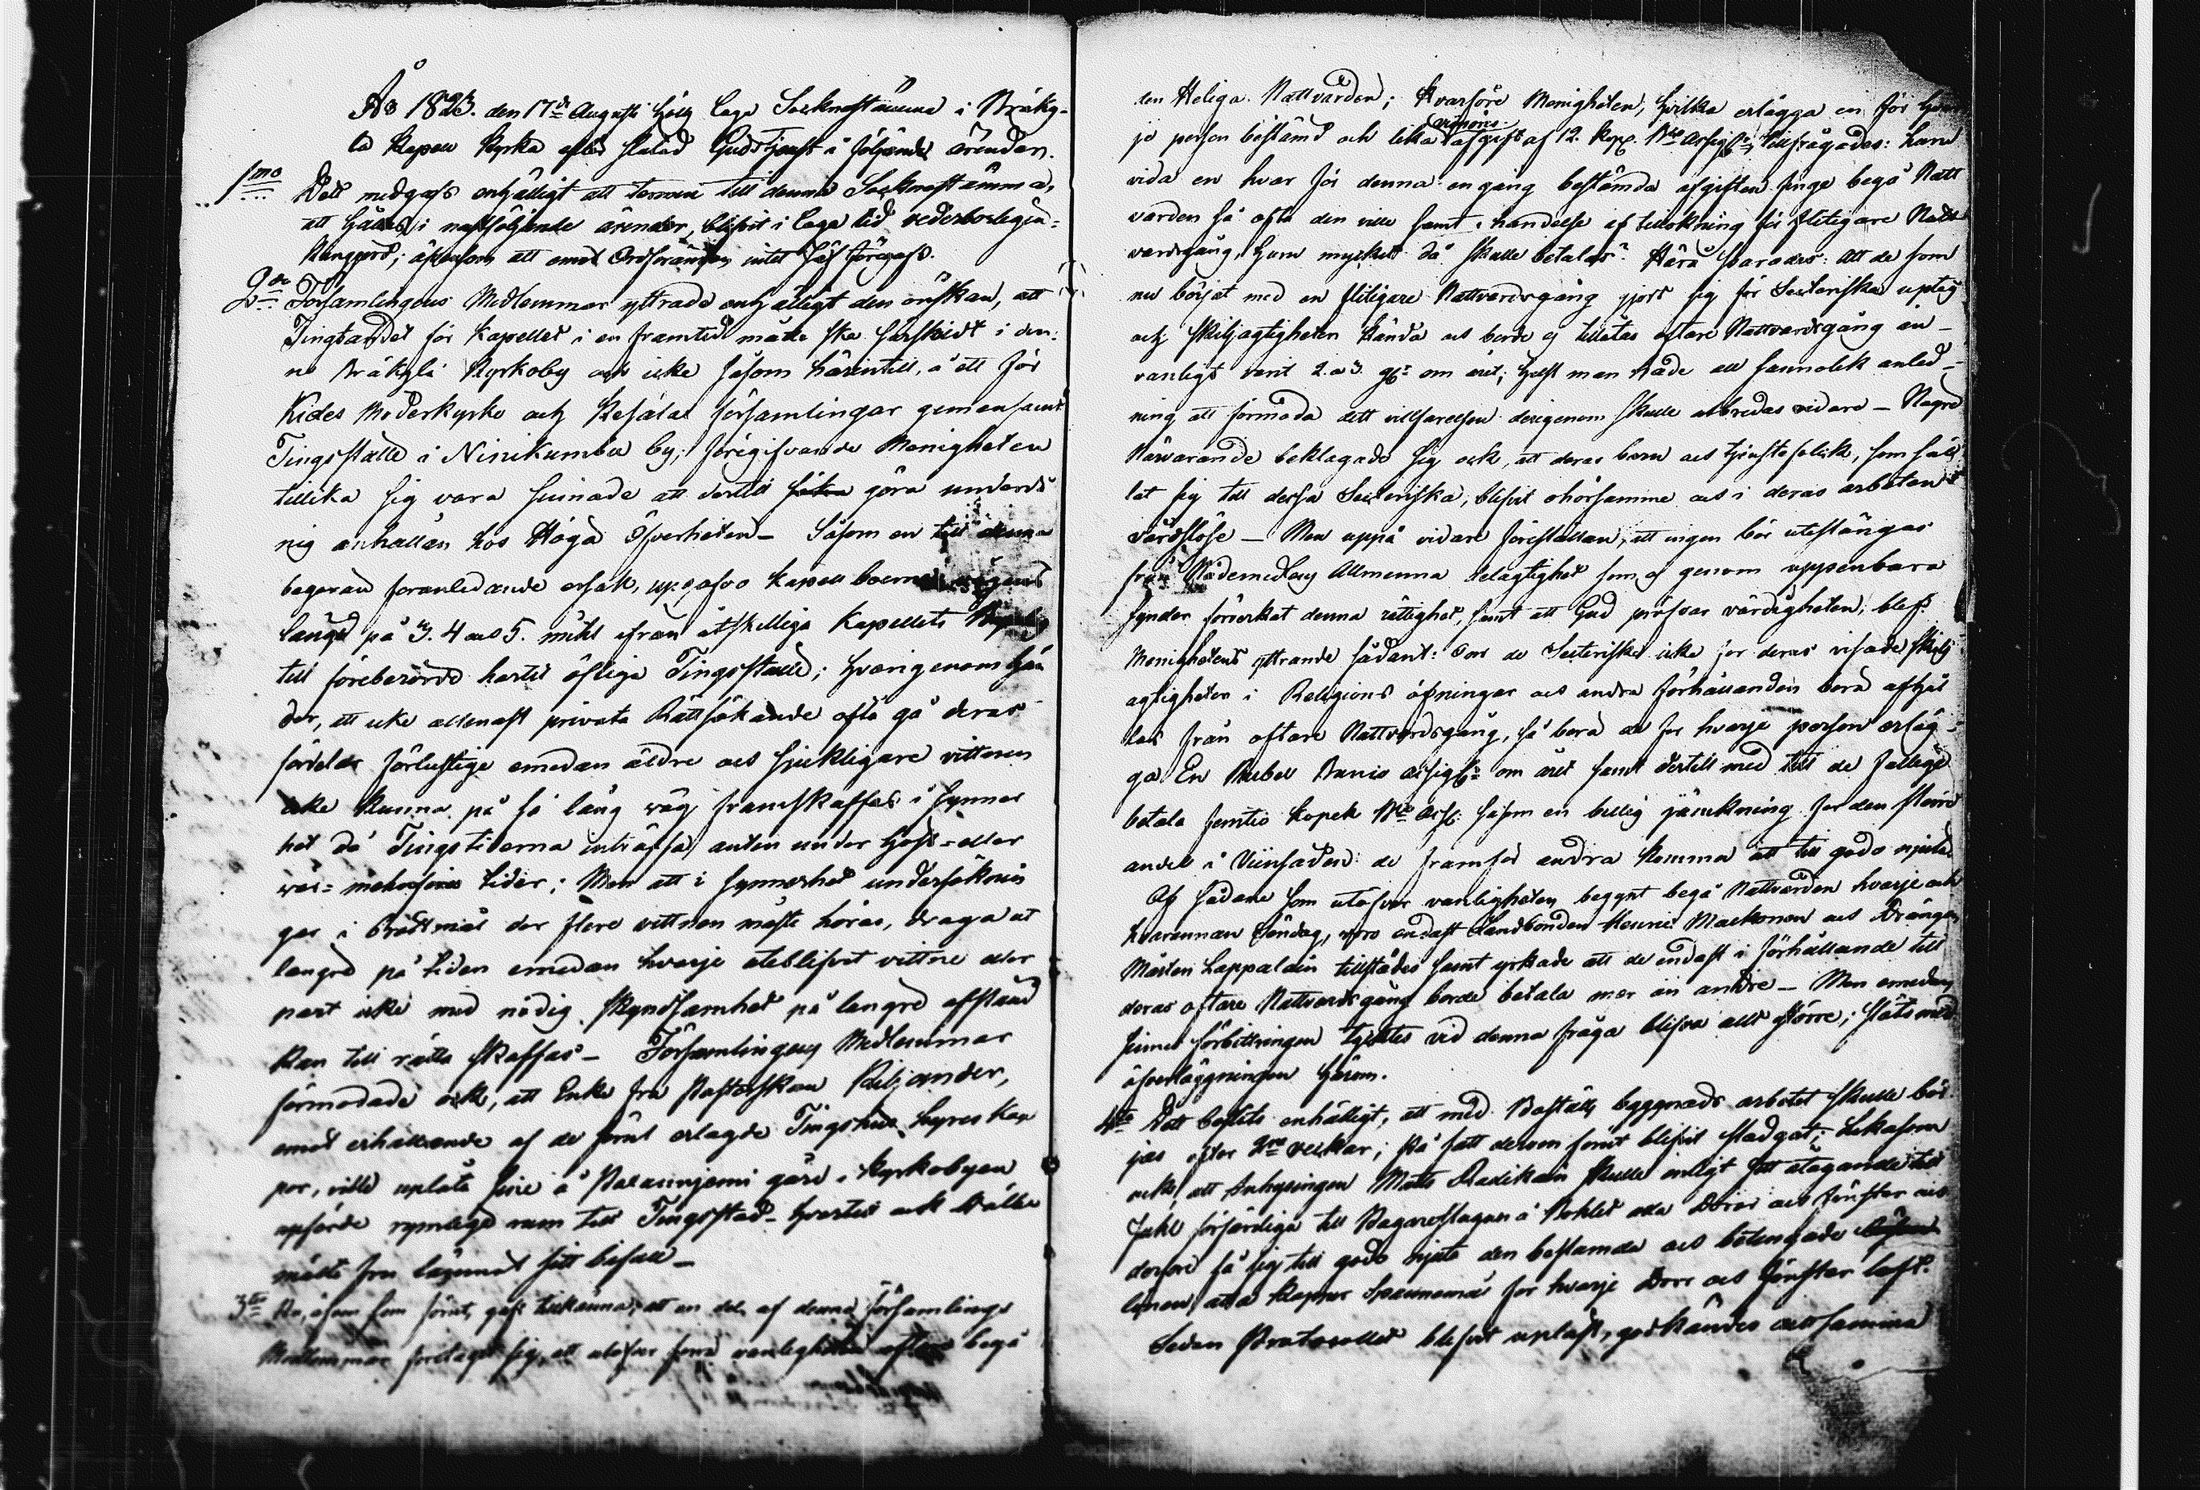 Åo 1823. den 17de Augusti hölls laga Socknestämma i Bräky-
lä Kapell Kyrka efter slutad Gudstjenst i följande ärender.
1mo Dett medgafs enhälligt att termin till denna Sockenstämma,
att hållas i nästföljande ärender, blifvit i laga tid vederbörligen
kungjord; äfvensom att emot Ordföranden intet Jäf föregafs.
2do Församlingens Medlemmar yttrade enhälligt den önskan, att
Tingsandet för Kapellet i en framtid måtte ske särskildt i den-
na Bräkylä Kyrkoby och icke såsom härintill, å ett för
Kides Moderkyrko och Kesälax församlingar gemensamt
Tingsställe i Niinikumbu by; föregifvande Menigheten
tillika sig vara sinnade att dertill söka göra underdå
nig anhållan hos Höga Öfverheten - Såsom en till denna
begäran föranledande orsak, uppgafvo Kapell boerne vägens
längd på 3. 4 och 5. mihl ifrån åtskilliga Kapellets Byar
till föreberörde hartil öfliga Tingsställe; hvarigenom hän
der, att icke allenast privata Rättsökande ofta gå deras
fördelar förlustige emedan äldre och sjukligare vittnen
icke kunna på så lång väg framskaffas i synner
het då Tingstiderna inträffa anten under höst - eller
vår- tider; Men att i synnerhet undersöknin
gar i Brottmål der flere vittnen måste höras, draga ut
längre på tiden emedan hvarje uteblifvit vittne eller
part icke med nödig skyndsamhet på längre afstånd
kan till rätta skaffas - Församlingens Medlemmar
förmodade ock, att Enke fru Pastorskan Kiljander,
emot erhållande af de förut erlagde Tingshus hyres kap
por, ville uplåta sine å gård i Kyrkobyen
uppförde rymlige rum till Tingsstad - hvartil ock
målte fru lägenhet sitt bifall -
3tio Ho, äfven som förut, gafs tillkänna, att en del af denna församlings
Medlemmar företaget sig, att utöfver förra vanligheten oftare begå
den Heliga Nattvarden; hvarföre Menigheten, hvilka erlägga en för hvar
je person bestämd och lika afgift af 12. Kop. Bko Assig:r, tillfrågades: huru
vida en hvar för denna en gång bestämda afgiften finge begå Natt
varden så ofta den ville samt i händelse af tillökning för flitigare Natt
vardsgång hvem mycket då skulle betalas? Härå svarades: att de som
nu börjat med en flitigare Nattvardsgång gjort sig för Secteriska uptåg
och skiljagtigheten kända och borde ej tillåtas oftare Nattvardsgång än
vanligt varit 2. a 3. ggr om året; helst man hade all sannolik anled-
ning att förmoda dett villfarelsen derigenom skulle utbredas vidare - Några
Närvarande beklagade sig ock, att deras barn och tjenstefolk, som säl
lat sig till dessa Secteriska, blifvit ohörsamme och i deras arbeten
vårdslöse - Men uppå vidare föreställan, att ingen bör utestängas
från Nådemedlens Allmenna delagtighet som ej genom uppenbara
synder förverkat denna rättighet, samt att Gud pröfvar värdigheten; blef
Menighetens yttrande sådant: Om de Secteriske icke för deras visade skilj
agtigheten i Religions öfningar och andra förhållanden böra afhål
las från oftare Nattvardsgång, så böra de för hvarje person erläg-
ga En Rubel Banco Assigr om året samt dertill med till de fattige
betala femtio kopek Bco Ass: såsom en billig jämkning för den större
andel i de framför andra komma att till godo njuta
Af sådane som utöfver vanligheten begynt begå Nattvarden hvarje och
hvarannan söndag, voro endast Landbonden Henric Maekonen och Drängen
Mårten Lappalain tillstädes samt yrkade att de endast i förhållande till
deras oftare Nattvardsgång borde betala mer än andre - Men emedan
sinnes förbittringen tycktes vid denna fråga blifva allt större; slöts med
öfverläggningen härom.
4to Dett beslöts enhälligt, att med Boställs byggnads arbetet skulle bör
jas efter 2ne veckor; på sätt derom förut blifvit stadgat; likasom
ock, att Inhysingen Matts Radikain skulle enligt sitt åtagande till
fullo förfärdiga till Bagarestugan å Bohlet alla Dörar och fönster och
derföre få sig till godo njuta den bestämda och betingade
lönen, åtta kappar Spannemål för hvarje Dörr och fönster luft.
Sedan Protocollet blifvit upläst, godkändes detsamma